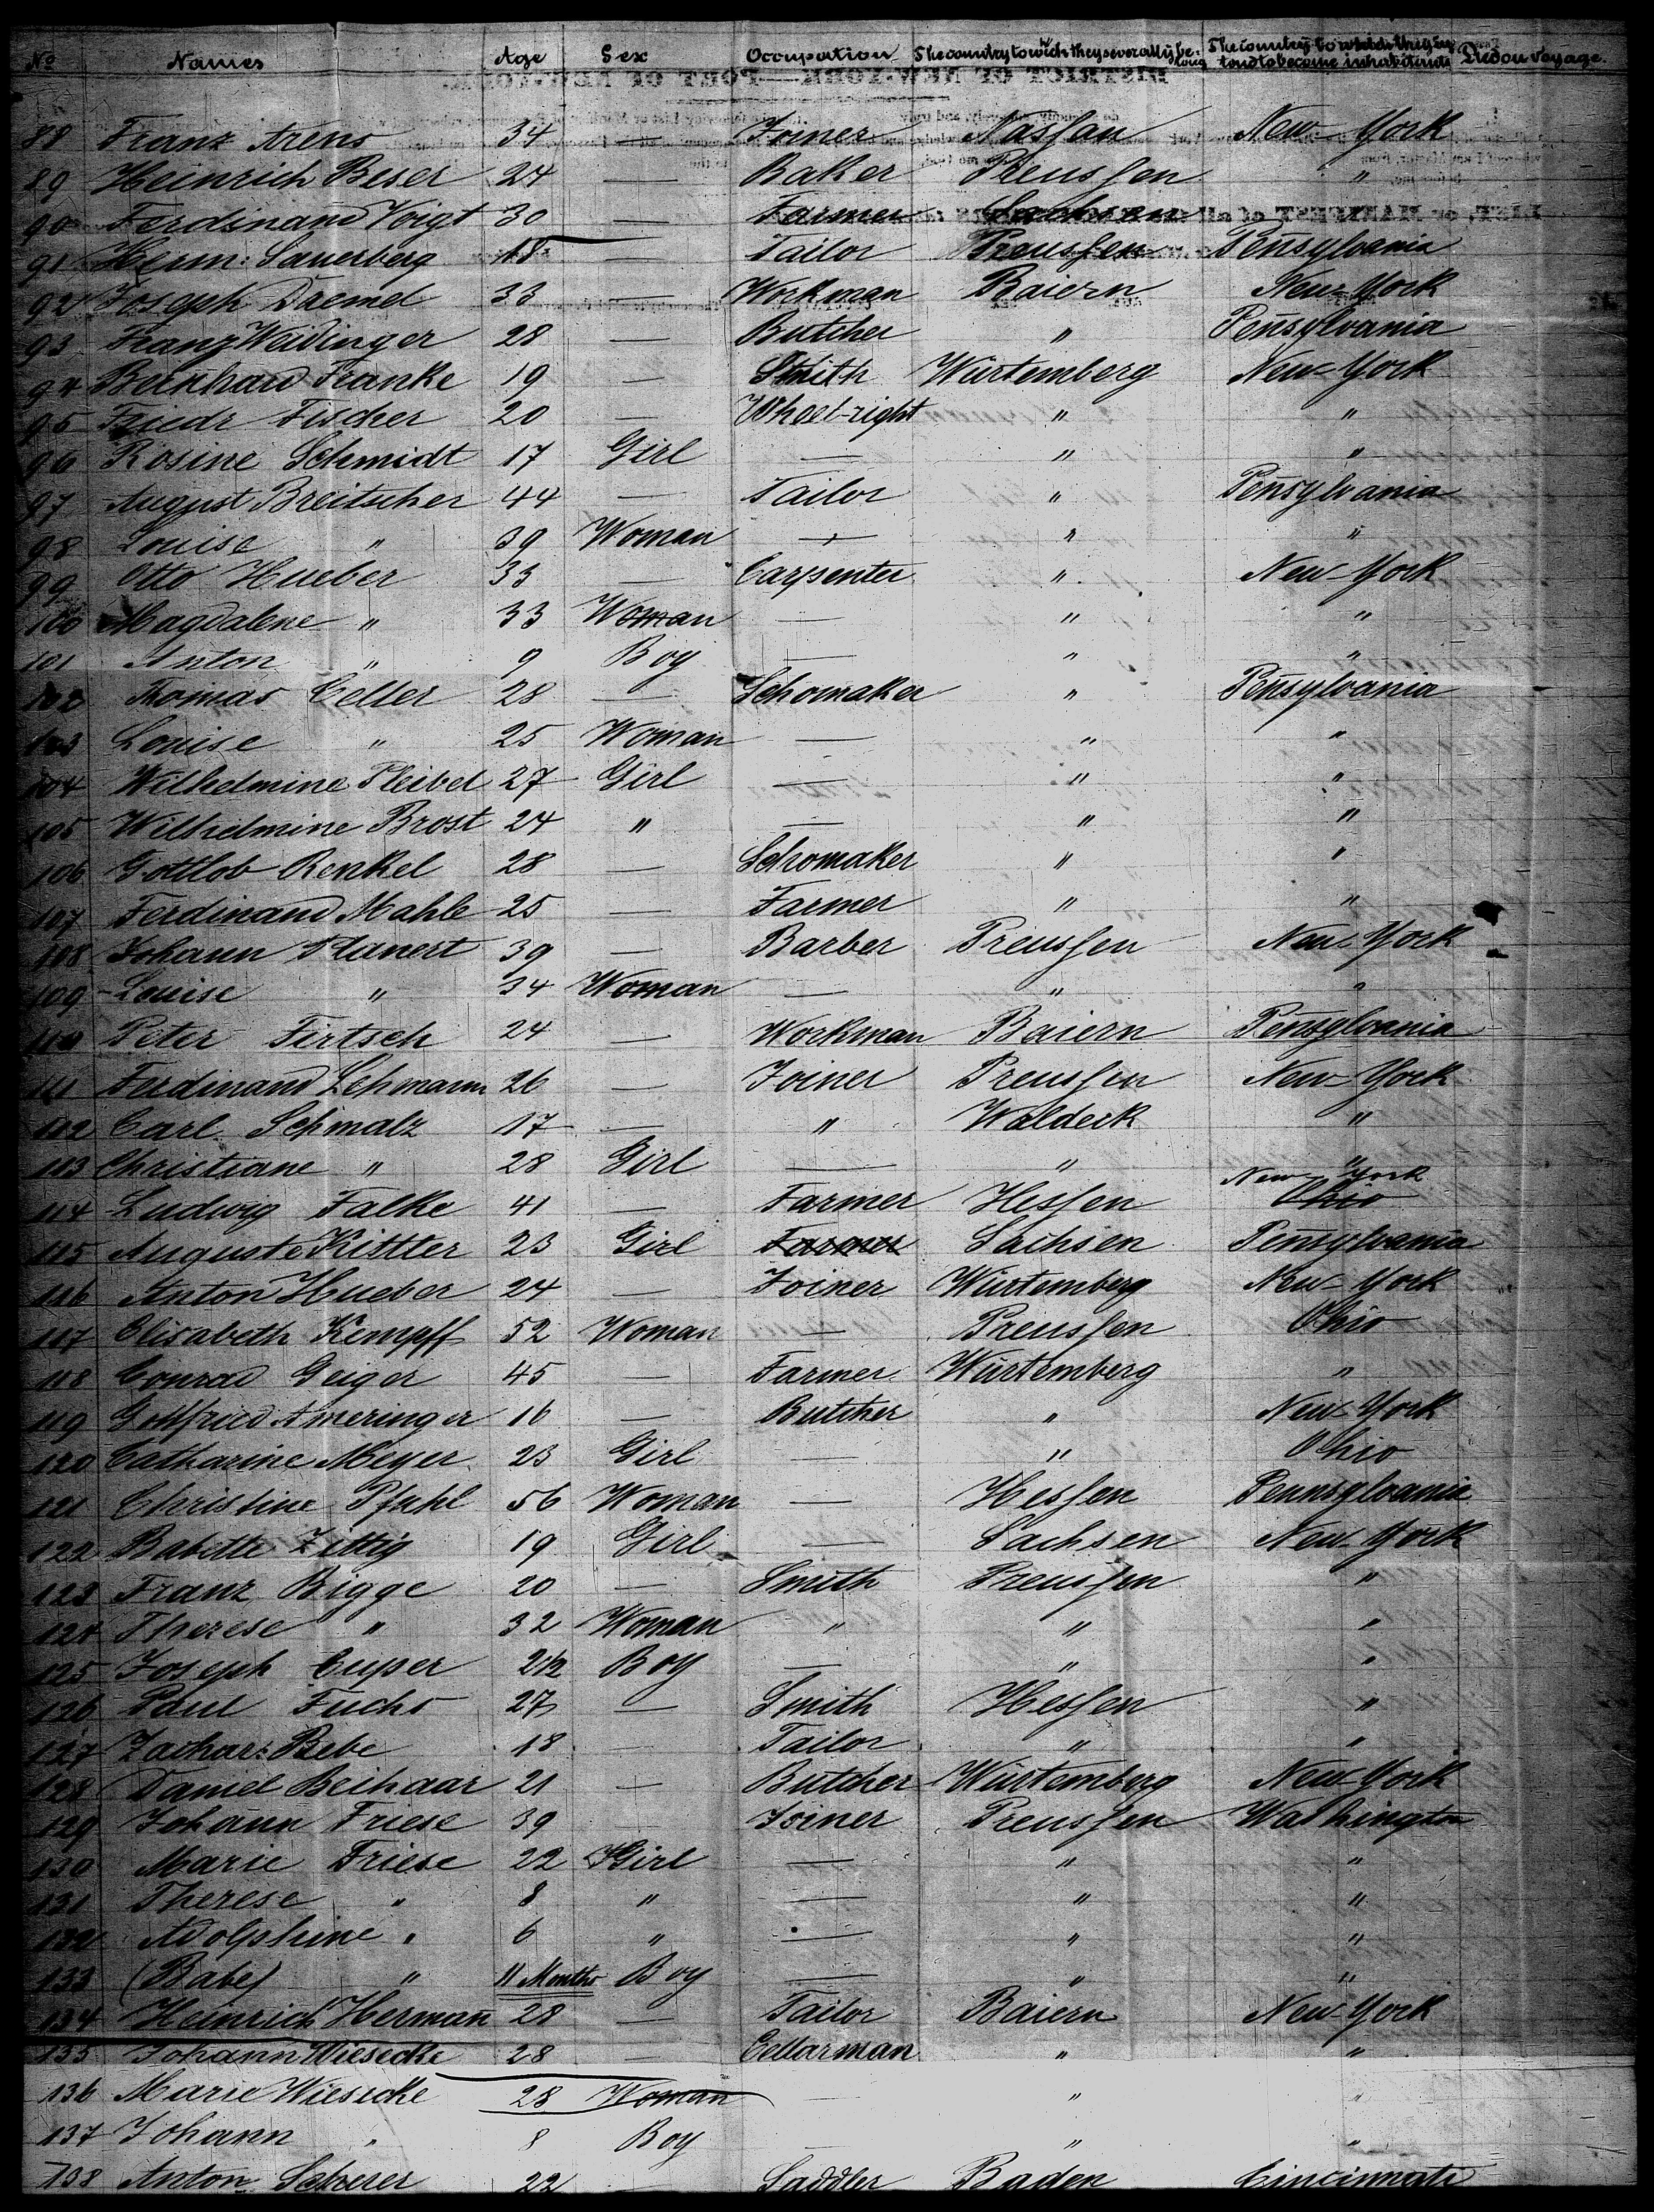 No Names Age Sex Occupation The country to wich they severally belong The country to which they intend to become inhabitants Died on Voyage.
DISTRICT OF NEW-YORK—PORT OF NEW-YORK
88 Franz Arens 34 — Joiner Nassau New-York
89 Heinrich Beser 24 — Baker Preussen "
90 Ferdinand Voigt 30 — Farmer
91 Herm: Sauerberg 18 — Tailor Preussen Pensylvania
92 Joseph Daemel 33 — Workman Baiern New-York
93 Franz Weidinger 28 — Butcher " Pensylvania
94 Burkhard Franke 19 — Smith Würtemberg New-York
95 Friedr Fischer 20 — Wheel-right " "
96 Rosine Schmidt 17 Girl — " "
97 August Breitscher 44 — Tailor " Pensylvania
98 Louise " 39 Woman — " "
99 Otto Hueber 33 — Carpenter " New-York
100 Magdalene " 33 Woman — " "
101 Anton " 9 Boy — " "
102 Tomas Celler 28 — Schomaker " Pensylvania
103 Louise " 25 Woman — " "
104 Wilhelmine Pleibel 27 Girl — " "
105 Wilhelmine Brost 24 " — " "
106 Gottlob Renkel 28 — Schomaker " "
107 Ferdinand Mahle 25 — Farmer " "
108 Johann Planert 39 — Barber Preussen New-York
109 Louise " 34 Woman — " "
110 Peter Firtsch 24 — Workman Baiern Pensylvania
111 Ferdinand Lehmann 26 — Joiner Preussen New-York
112 Carl Schmalz 17 — " Waldeck "
113 Christiane " 28 Girl — " "
114 Ludwig Falke 41 — Farmer Hessen Ohio New York
115 Auguste Kittler 23 Girl Farmer Sachsen Pensylvania
116 Anton Hueber 24 — Joiner Würtemberg New-York
117 Elisabeth Kempff 52 Woman — Preussen Ohio
118 Conrad Geiger 45 — Farmer Würtemberg "
119 Gottfried Ameringer 16 — Butcher " New-York
120 Catharine Meyer 23 Girl — " Ohio
121 Christine Pfuhl 56 Woman — Hessen Pennsylvania
122 Babette Zittig 19 Girl — Sachsen New-York
123 Franz Bigge 20 — Smith Preussen "
124 Therese " 32 Woman " " "
125 Joseph Cuper 2½ Boy — " "
126 Paul Fuchs 27 — Smith Hessen "
127 Zachar: Bebe 18 — Tailor " "
128 Daniel Beihaar 21 — Butcher Würtemberg New-York
129 Johann Friese 39 Joiner Preussen Washington
130 Marie Friese 22 Girl — " "
131 Therese " 8 " — " "
132 Adolphine " 6 " — " "
133 (Babe) " 11 Months Boy — " "
134 Heinrich Herman 28 — Tailor Baiern New-York
135 Johann Wiesecke 28 — Cellarman " "
136 Marie Wiesecke 28 Woman — " "
137 Johann " 8 Boy — " "
138 Anton Scherer 22 — Saddler Baden Cincinnati